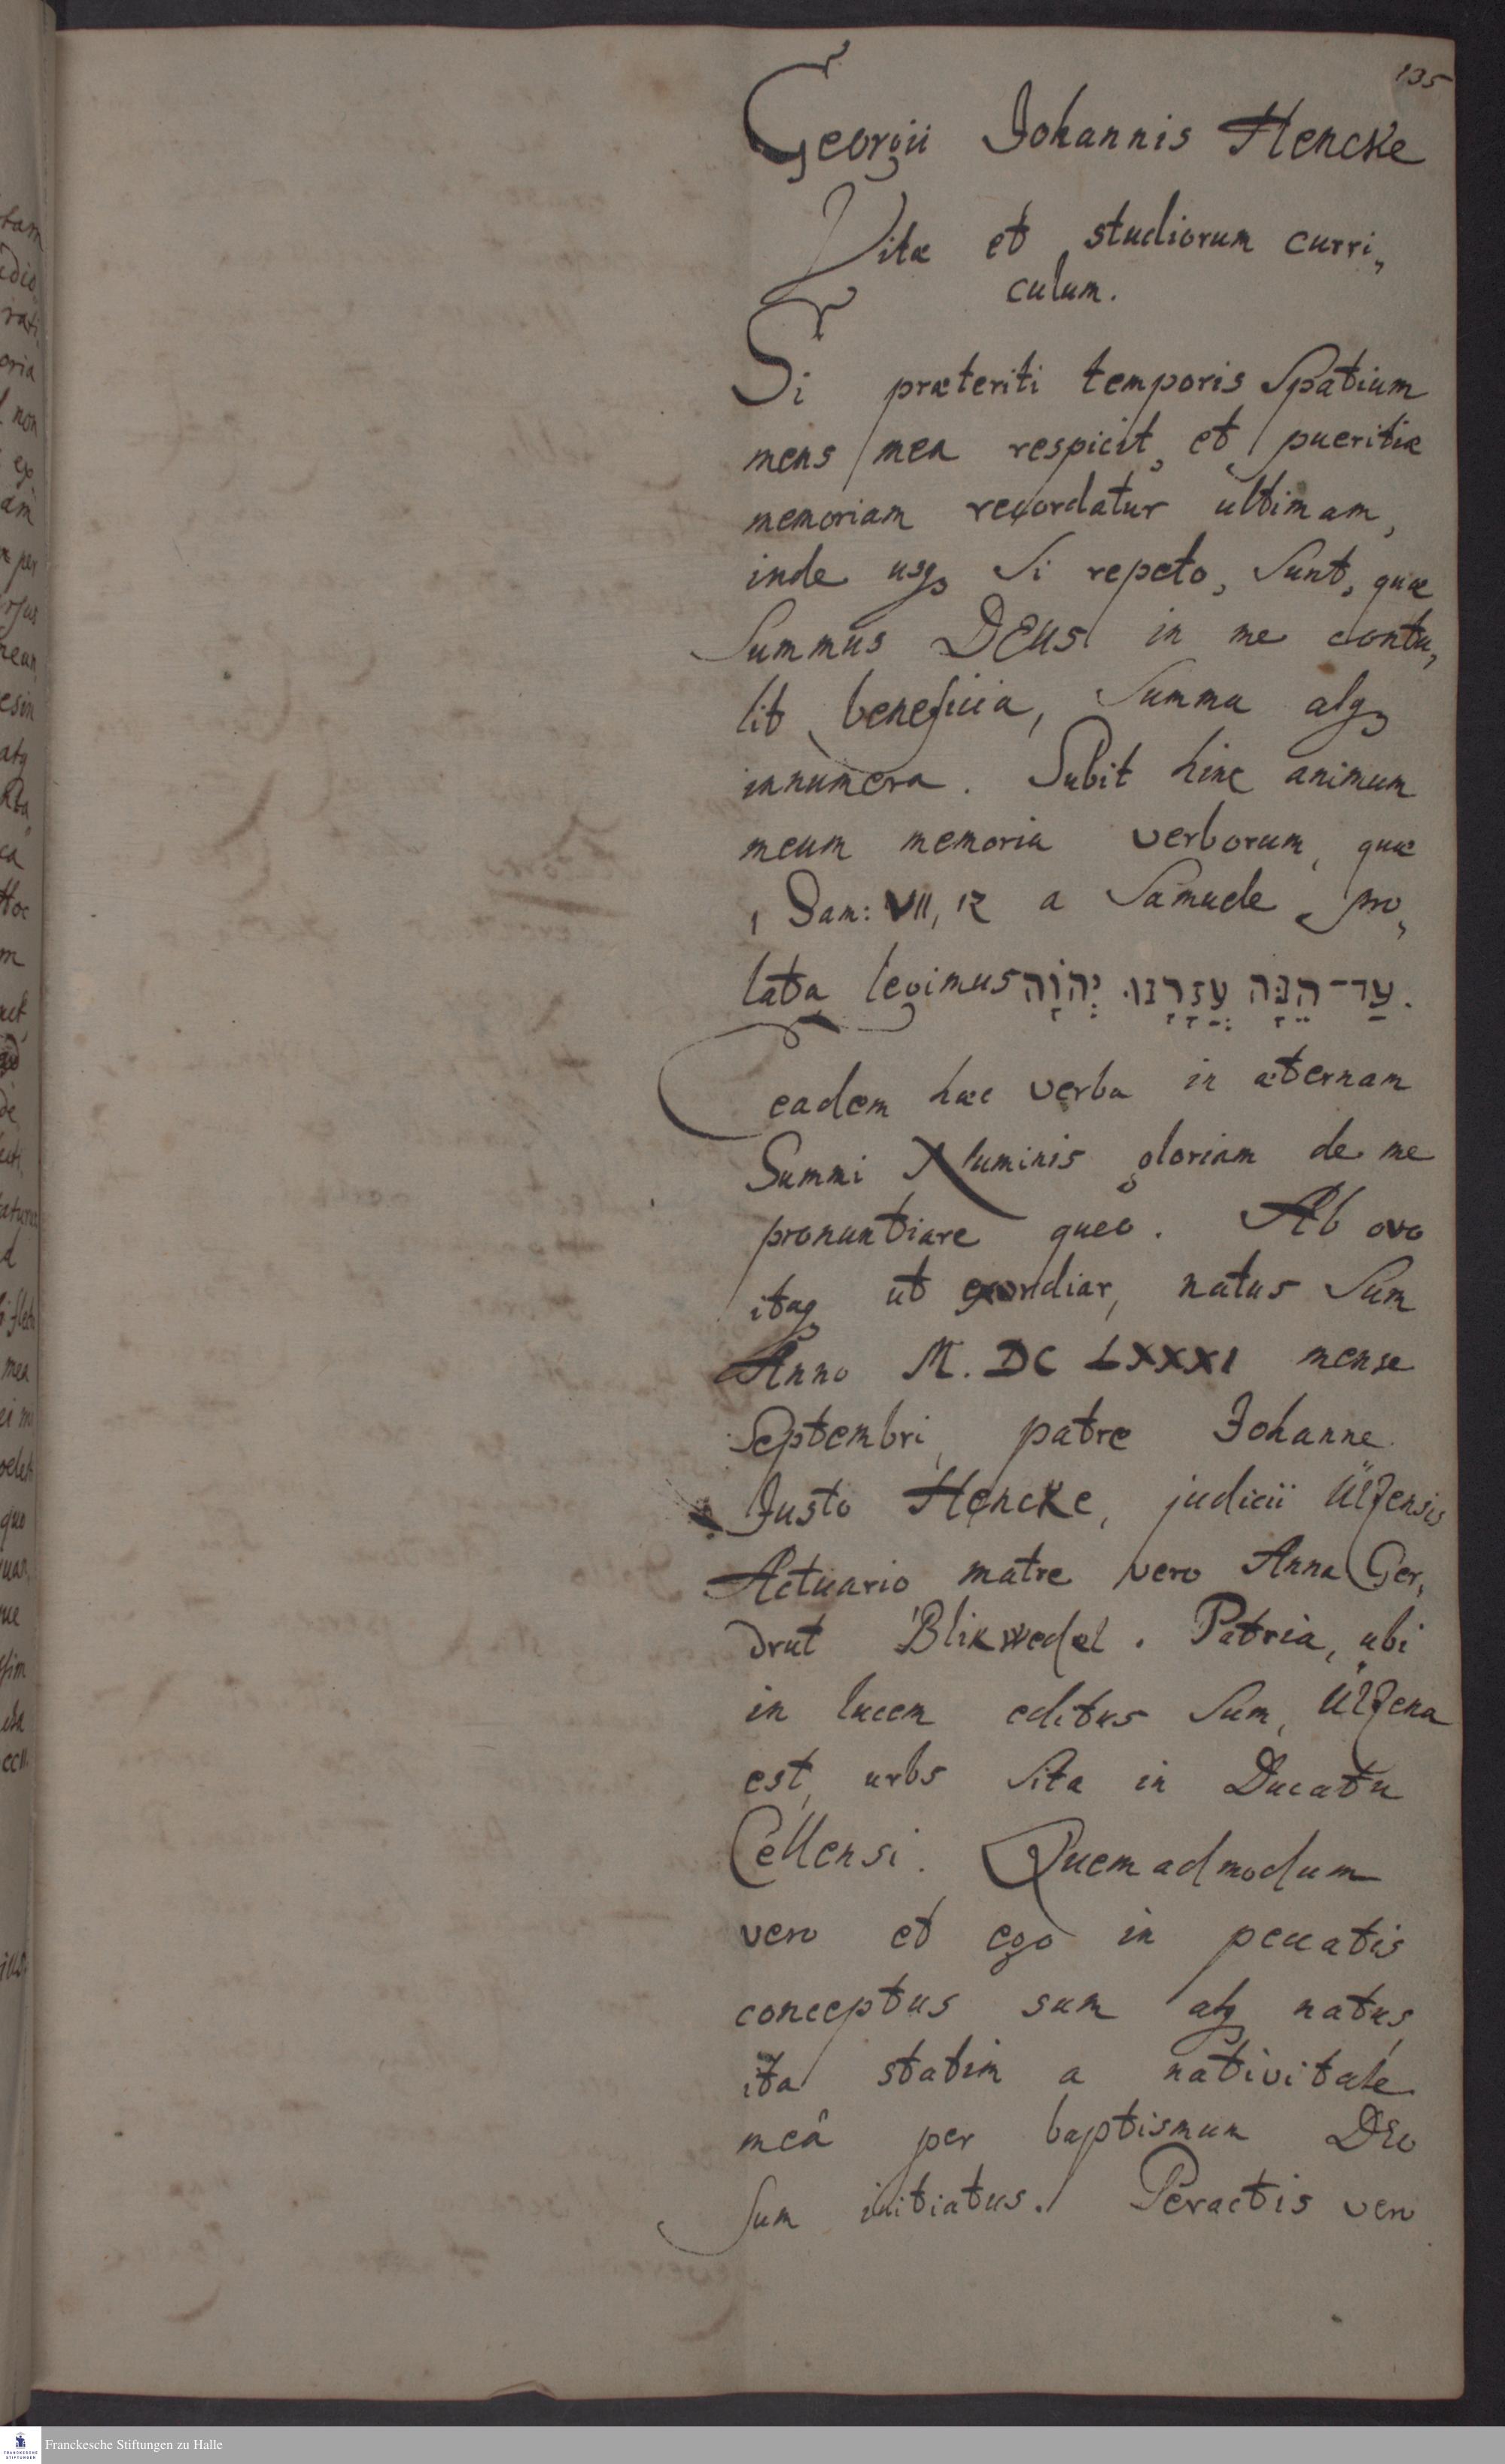 135
Georgii Johannis Hencke
Vitæ et studiorum curri,
culum.
Si præteriti temporis Spatium
mens mea respicit, et pueritiæ
memoriam recordatur ultimam,
inde usq3 Si repeto, Sunt, quæ
Summus DEUS in me contu,
lit beneficia, Summa atq3
innumera. Subit hinc animum
meum memoria verborum, quæ
1 Sam: VII, 12 a Samuele pro,
lata legimus עַד־הֵנָּה עֲזָרָנוּ יְהוָֹה.
eadem hæc verba in æternam
Summi Numinis gloriam de me
pronuntiare queo. Ab ovo
itaq3 ut exordiar, natus Sum
Anno M. DC LXXXI mense
Septembri, patre Johanne
Justo Hencke, judicii Ülzensis
Actuario matre vero Anna Ger,
drut Blikwedel. Patria, ubi
in lucem editus Sum, Ülzena
est, urbs Sita in Ducatu
Cellensi. Quemadmodum
vero et ego in peccatis
conceptus sum atq3 natus,
ita statim a nativitate
meâ per baptismum DEo
Sum initiatus. Peractis vero
tam
non
ex
per
esin
atq
ca
Hoc
m
mea
quo
Franckesche Stiftungen zu Halle